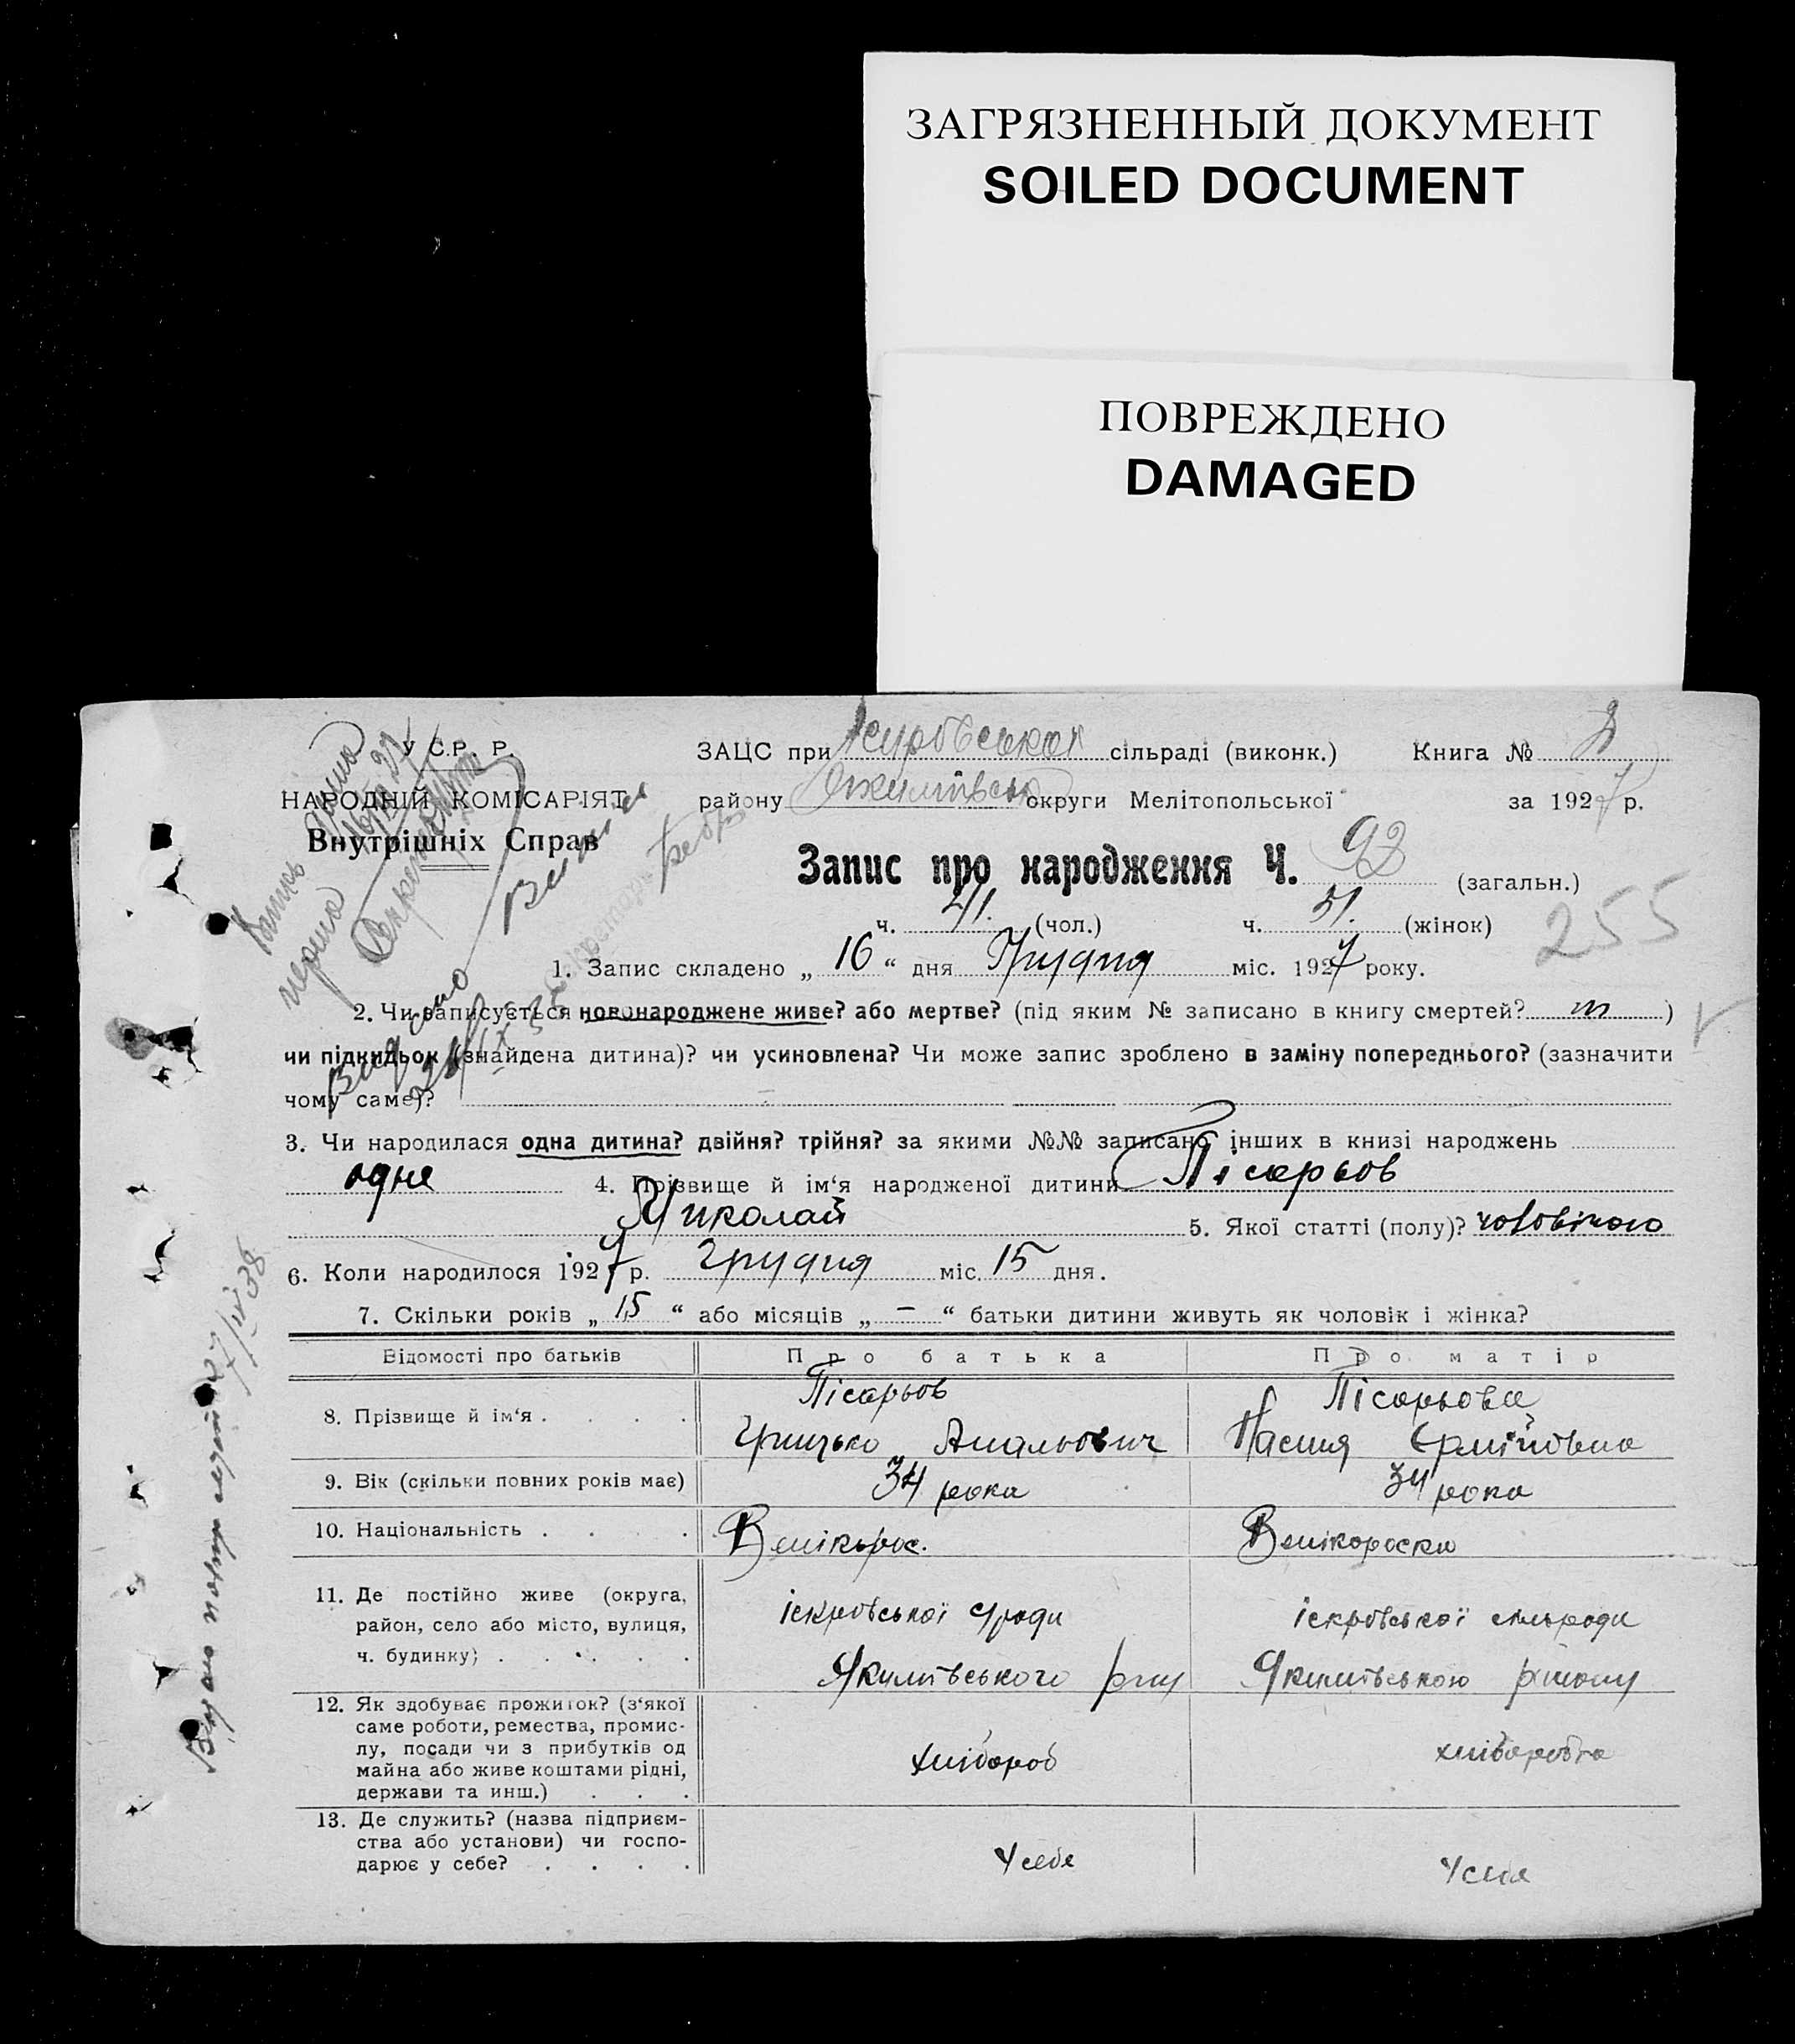 ЗАГРЯЗНЕННЫЙ ДОКУМЕНТ
SOILED DOCUMENT
ПОВРЕЖДЕНО
DAMAGED
У С.Р. Р.
НАРОДНІЙ КОМІСАРІЯТ
Внутрішніх Справ
ЗАЦС при сільраді (виконк.) Книга №
району округи Мелітопольської за 1927 р.
Запис про народження Ч. 92 (загальн.)
ч. 41. (чол.) ч. 51. (жінок)
255
1. Запис складено „ 16 “ дня Грудня міс. 1927 року.
2. Чи записується новонароджене живе? або мертве? (під яким № записано в книгу смертей? )
чи підкидьок (знайдена дитина)? чи усиновлена? Чи може запис зроблено в заміну попереднього? (зазначити
чому саме)?
3. Чи народилася одна дитина? двійня? трійня? за якими №№ записано інших в книзі народжень
одне 4. Прізвище й ім‘я народженої дитини Пісарьов
Миколай 5. Якої статті (полу)? чоловічого
6. Коли народилося 1927 р. грудня міс. 15 дня.
7. Скільки років „ 15 “ або місяців „ — “ батьки дитини живуть як чоловік і жінка?
Відомості про батьків Про батька Про матір
8. Прізвище й ім‘я . . . . Пісарьов Пісарьова
Грицько
9. Вік (скільки повних років має) 34 рока 34 рока
10. Національність . . . . Велікорос. Велікороска
11. Де постійно живе (округа,
район, село або місто, вулиця,
ч. будинку) . . . . .
іскрівської с/ради іскрівської сільради
Якимівського р-ну Якимівського району
12. Як здобуває прожиток? (з‘якої
саме роботи, ремества, промис-
лу, посади чи з прибутків од
майна або живе коштами рідні,
держави та инш.) . . .
хлібороб хліборобка
13. Де служить? (назва підприєм-
ства або установи) чи госпо-
дарює у себе? . . . .
У себе У себе